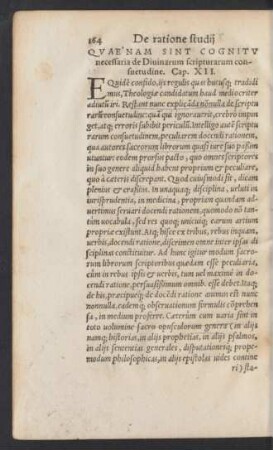 364 De ratione studij
QVAE NAM SINT COGNITV
necessaria de Diuinarum scripturarum con-
suetudine. Cap. XII.
EQuidē confido, ijs regulis quas hucusq; tradidi
mus, Theologiæ candidatum haud mediocriter
adiutū iri. Restant nunc explicāda nōnulla de scriptu
rarū consuetudine: quā qui ignorauerit, crebrò impin
get, atq; erroris subibit periculū. Intelligo autē scriptu
rarum consuetudinem, peculiarem docendi rationem,
qua autores sacrorum librorum quasi iure suo passim
vtuntur, eodem prorsus pacto, quo omnes scriptores in
suo genere aliquid habent proprium & peculiare,
quo à cæteris discrepant. Quod cuiusmodi sit, dicam
plenius & crassius. In vnaquaq; disciplina, veluti in
iurisprudentia, in medicina, propriam quandam ad-
uertimus seruari docendi rationem, quomodo nō tan-
tùm vocabula, sed res quoq; vniuscuiusq; earum artium
propriæ existunt. Atq; hisce ex tribus, rebus inquam,
verbis, docendi ratione, discrimen omne inter ipsas di
sciplinas constituitur. Ad hunc igitur modum sacro-
rum librorum scriptoribus quædam esse peculiaria,
cùm in rebus ipsis & verbis, tum vel maximè in do-
cendi ratione, persuasissimum omnib. esse debet. Itaq;
de his, præcipueq; de docēdi ratione animus est nunc
nonnulla, eadem q; obseruationum formulis cōprehen
sa, in medium proferre. Cæterùm cum varia sint in
toto volumine sacro opusculorum genera (in alijs
namq; historias, in alijs prophetias, in alijs psalmos,
in alijs sententias generales, disputationesq; prope-
modum philosophicas, in alijs epistolas vides contine
ri) sta-